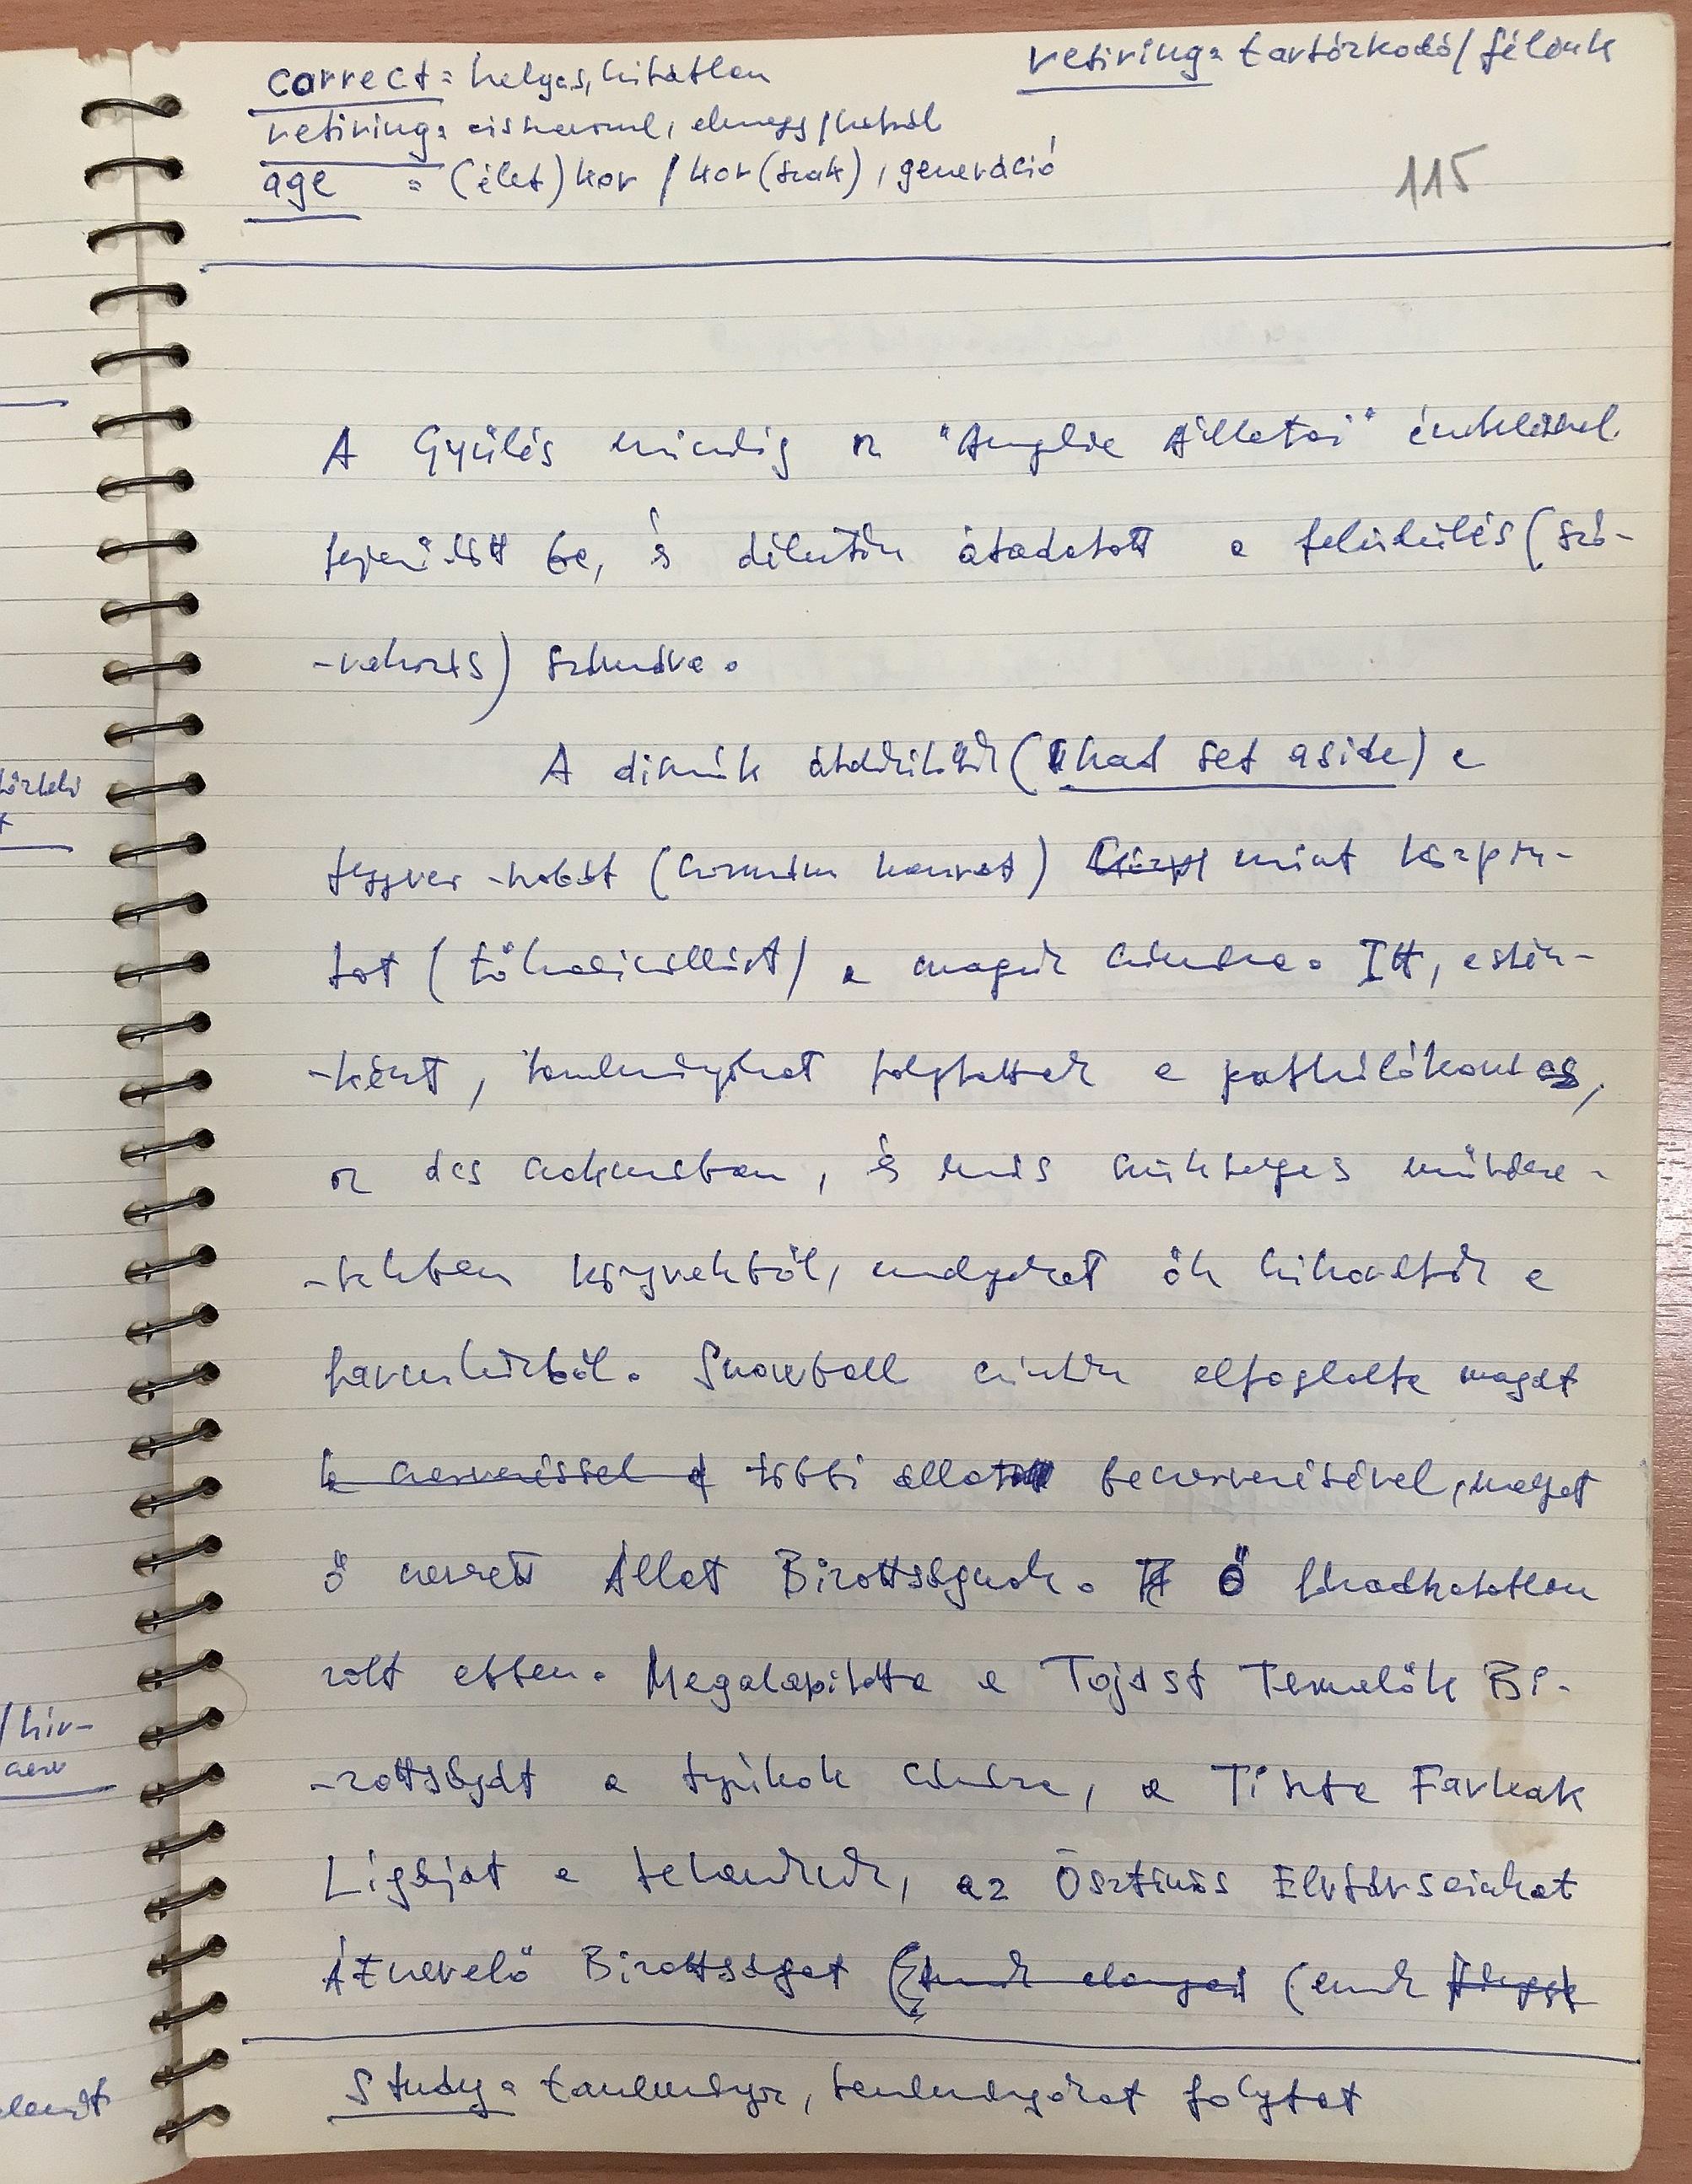 correct = helyes, hibátlan
retiring = tartózkodó / félénk
retiring = visszavonul, elmegy / hátrál
age = (élet) kor / kor(szak), generáció
115
A Gyűlés mindig az "Anglia Állatai" éneklésével
fejeződött be, és délután átadatott a felüdülés (szó-
-rakozás) számára.
A disznók átdőltötték (had set aside) a
fegyver-szobát (hármám) mint közpon-
tot (főhadiszállást) a maguk számára. Itt, estén-
-ként, tanulmányokat folytattak a patkolókovács,
az ács szakmában, és más szükséges művésze-
-tekben könyvekből, melyeket ők kihoztak a
farmházból. Snowball szintén elfoglalta magát
többi állatok beszervezésével, melyet
ő nevezett Állat Bizottságnak. Ő fáradhatatlan
volt ebben. Megalapította a Tojást Termelők Bi-
-zottságát a tyúkok számára, a Tiszta Farkak
Ligáját a teheneknek, az Ösztönös Elvtársainkat
Átnevelő Bizottságot (ennek
Study = tanulmány, tanulmányokat folytat